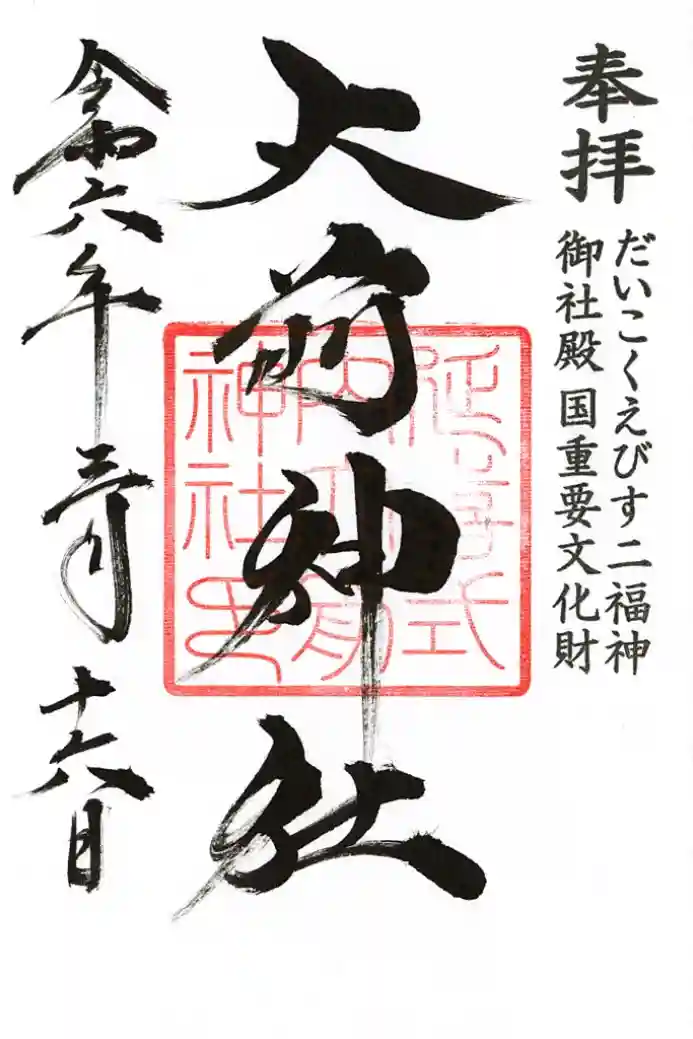 奉拝
だいこくえびす二福神
御社殿 国重要文化財
大前神社
延喜式
内大前
神社印
令和六年 三月 十六日